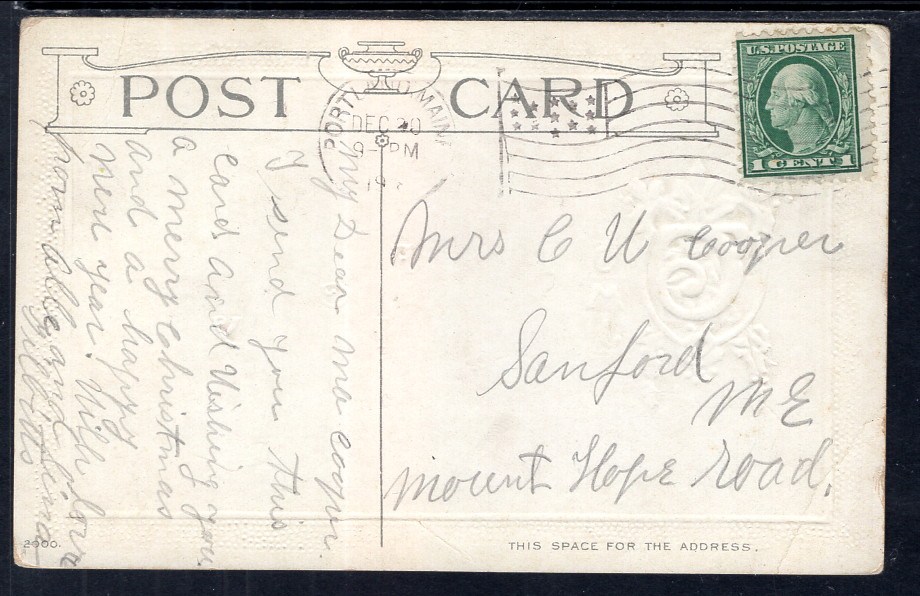 POST CARD
PORTLAND MAINE
DEC 20
9- PM
19
U.S. POSTAGE
1 CENT 1
My Dear Mrs Cooper.
I send you this
card and Wishing you
a merry christmas
and a happy
new year. With love
from all and
Tibbetts
Mrs C U Cooper
Sanford
ME
Mount Hope Road.
2000.
THIS SPACE FOR THE ADDRESS.